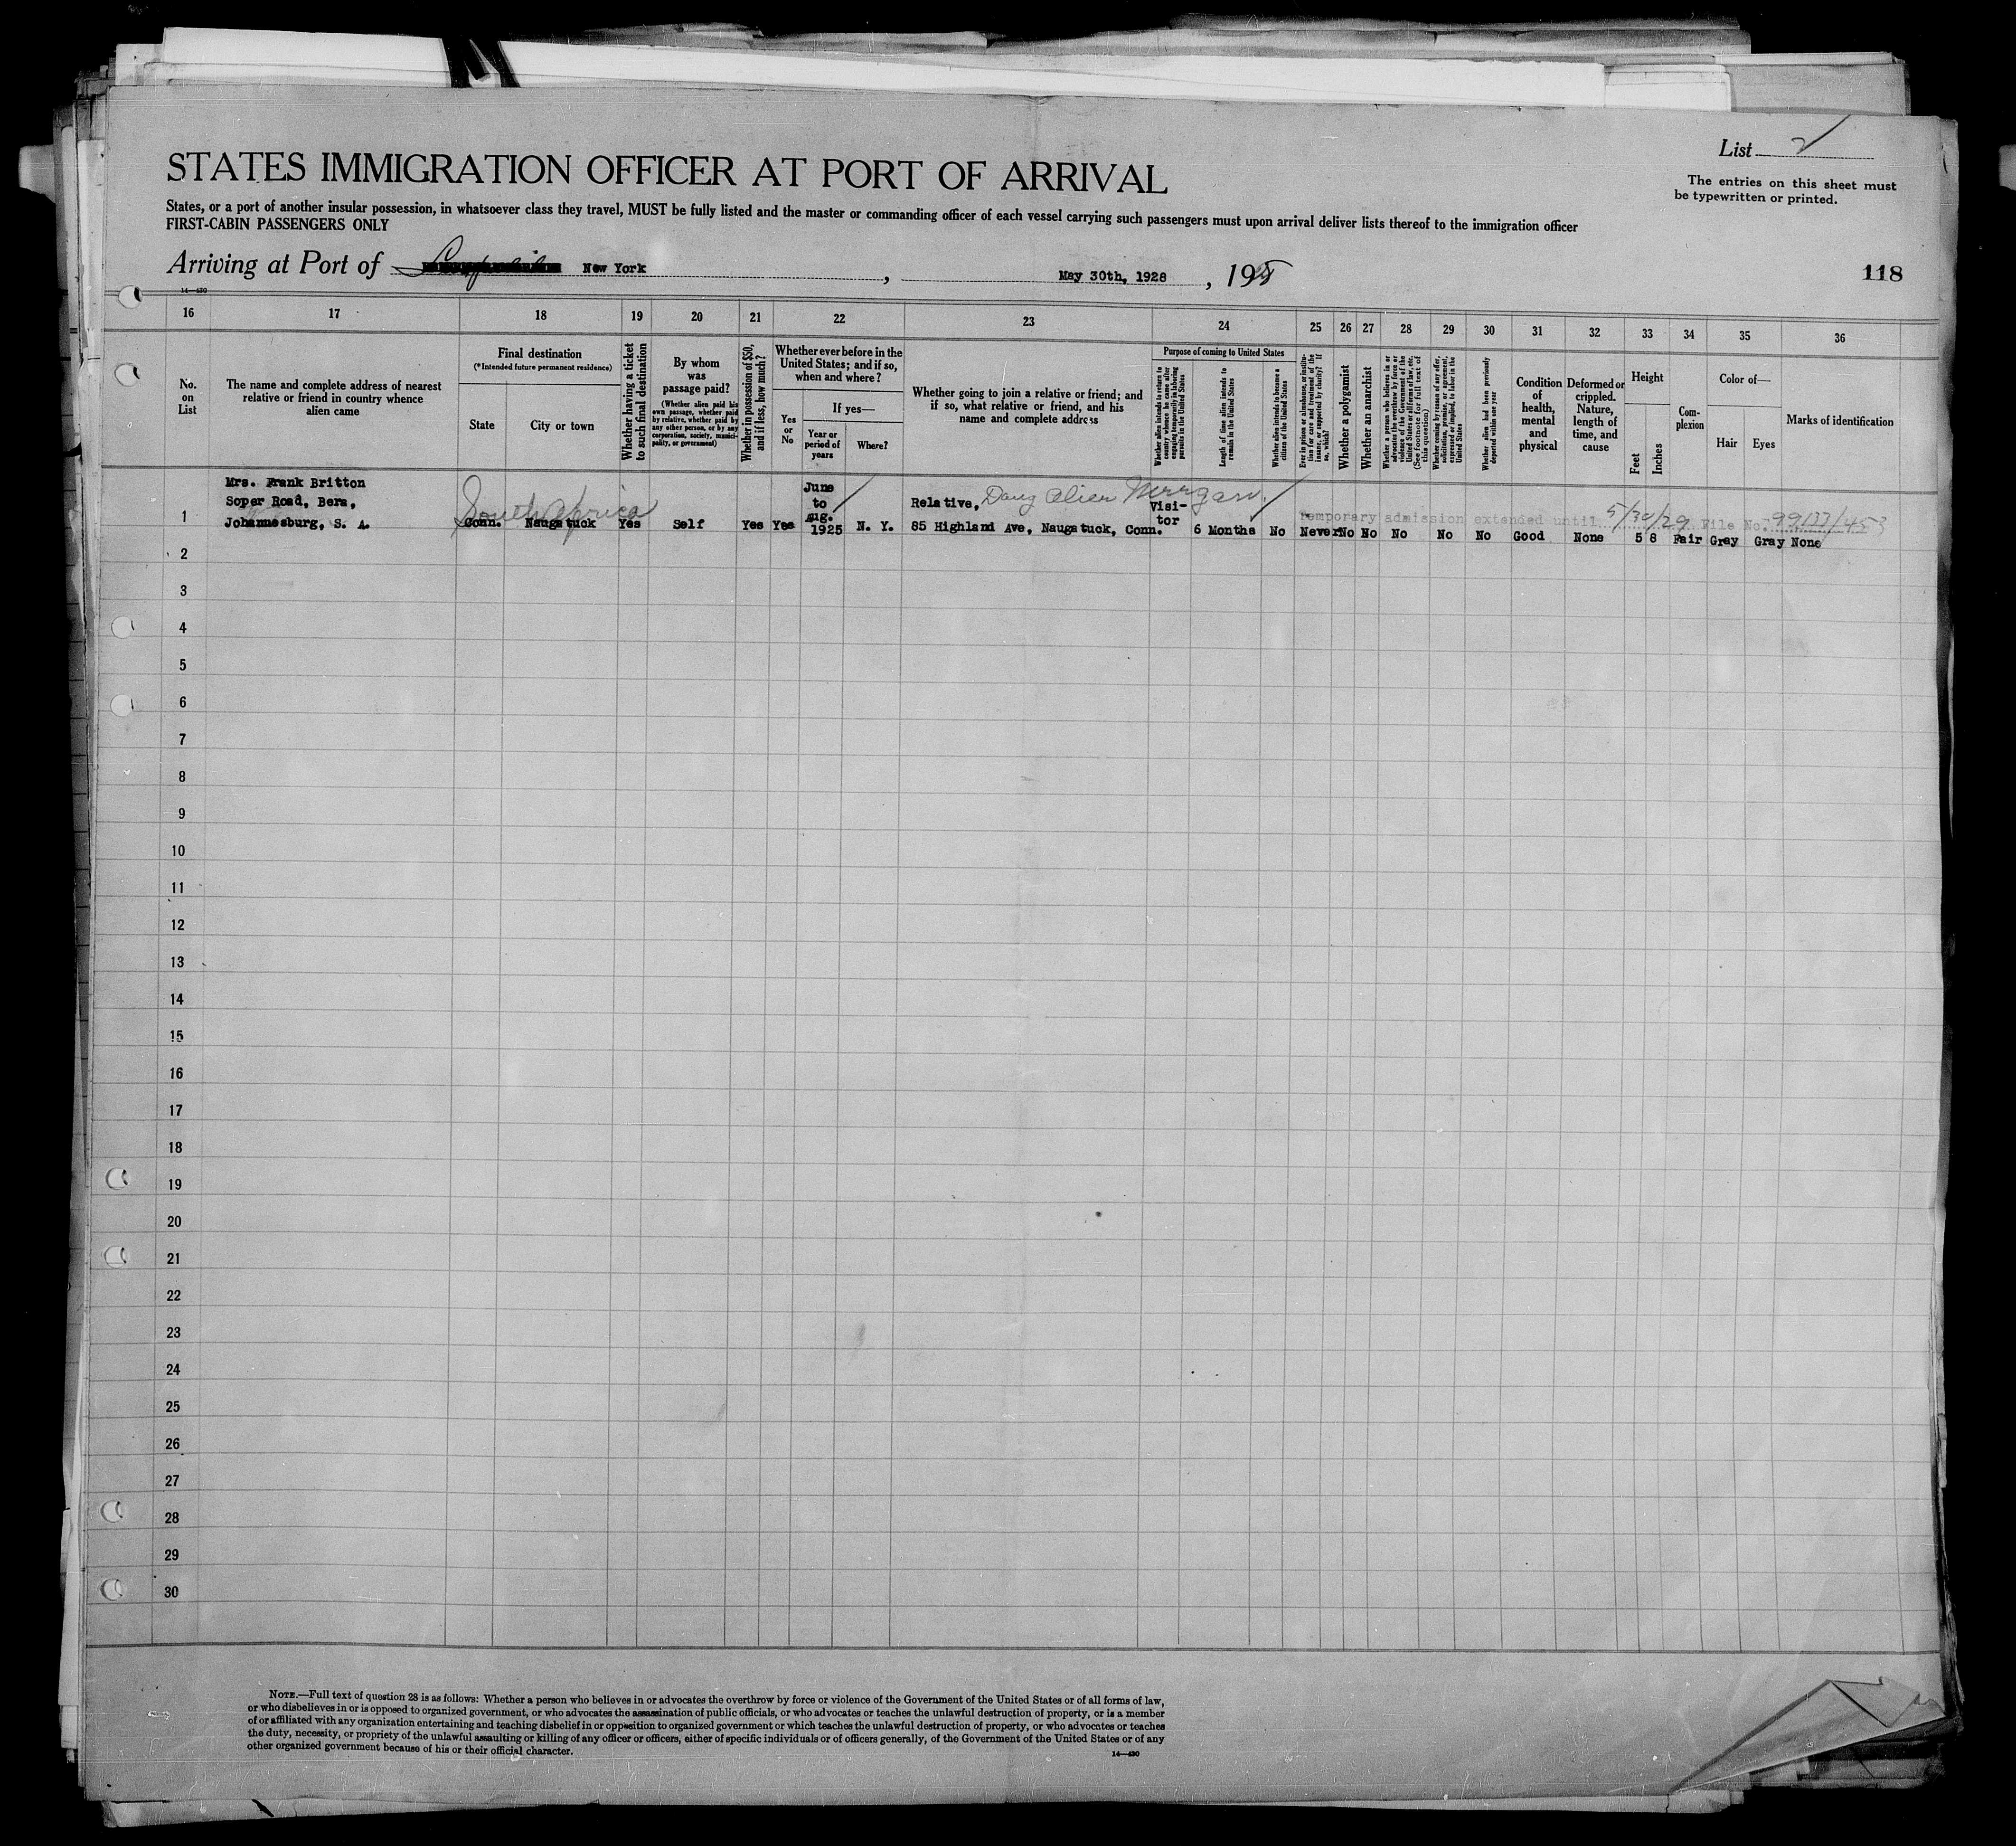 List 2
The entries on this sheet must
be typewritten or printed.
STATES IMMIGRATION OFFICER AT PORT OF ARRIVAL
States, or a port of another insular possession, in whatsoever class they travel, MUST be fully listed and the master or commanding officer of each vessel carrying such passengers must upon arrival deliver lists thereof to the immigration officer
FIRST-CABIN PASSENGERS ONLY
Arriving at Port of New York, May 30th, 1928, 1928
118
14—430
16 17 18 19 20 21 22 23 24 25 26 27 28 29 30 31 32 33 34 35 36
No.
on
List
The name and complete address of nearest
relative or friend in country whence
alien came
Final destination
(*Intended future permanent residence)
State
City or town
Whether having a ticket
to such final destination
By whom
was
passage paid?
(Whether alien paid his
own passage, whether paid
by relative, whether paid by
any other person, or by any
corporation, society, munici-
pality, or government)
Whether in possession of $50,
and if less, how much?
Whether ever before in the
United States; and if so,
when and where?
Yes
or
No
If yes—
Year or
period of
years
Where?
Whether going to join a relative or friend; and
if so, what relative or friend, and his
name and complete address
Purpose of coming to United States
Whether alien intends to return to
country whence he came after
engaging temporarily in laboring
pursuits in the United States
Length of time alien intends to
remain in the United States
Whether alien intends to become a
citizen of the United States
Ever in prison or almshouse, or institu-
tion for care and treatment of the
insane, or supported by charity? If
so, which?
Whether a polygamist
Whether an anarchist
Whether a person who believes in or
advocates the overthrow by force or
violence of the Government of the
United States or all forms of law, etc.
(See footnote for full text of
this question)
Whether coming by reason of any offer,
solicitation, promise, or agreement,
expressed or implied, to labor in the
United States
Whether alien had been previously
deported within one year
Condition
of
health,
mental
and
physical
Deformed or
crippled.
Nature,
length of
time, and
cause
Height
Feet
Inches
Com-
plexion
Color of—
Hair
Eyes
Marks of identification
Mrs. Frank Britton
Soper Road, Bera,
Johannesburg, S. A.
South Africa
1 Conn. Naugatuck Yes Self Yes Yes
June
to
Aug.
1925 N. Y.
Relative, Daug Alien
85 Highland Ave, Naugatuck, Conn.
Visi-
tor
6 Months No
Temporary admission extended until 5/30/29 File No. 99133/453
Never No No No No No Good None 5 8 Fair Gray Gray None
2
3
4
5
6
7
8
9
10
11
12
13
14
15
16
17
18
19
20
21
22
23
24
25
26
27
28
29
30
NOTE.—Full text of question 28 is as follows: Whether a person who believes in or advocates the overthrow by force or violence of the Government of the United States or of all forms of law,
or who disbelieves in or is opposed to organized government, or who advocates the assassination of public officials, or who advocates or teaches the unlawful destruction of property, or is a member
of or affiliated with any organization entertaining and teaching disbelief in or opposition to organized government or which teaches the unlawful destruction of property, or who advocates or teaches
the duty, necessity, or propriety of the unlawful assaulting or killing of any officer or officers, either of specific individuals or of officers generally, of the Government of the United States or of any
other organized government because of his or their official character.
14—430